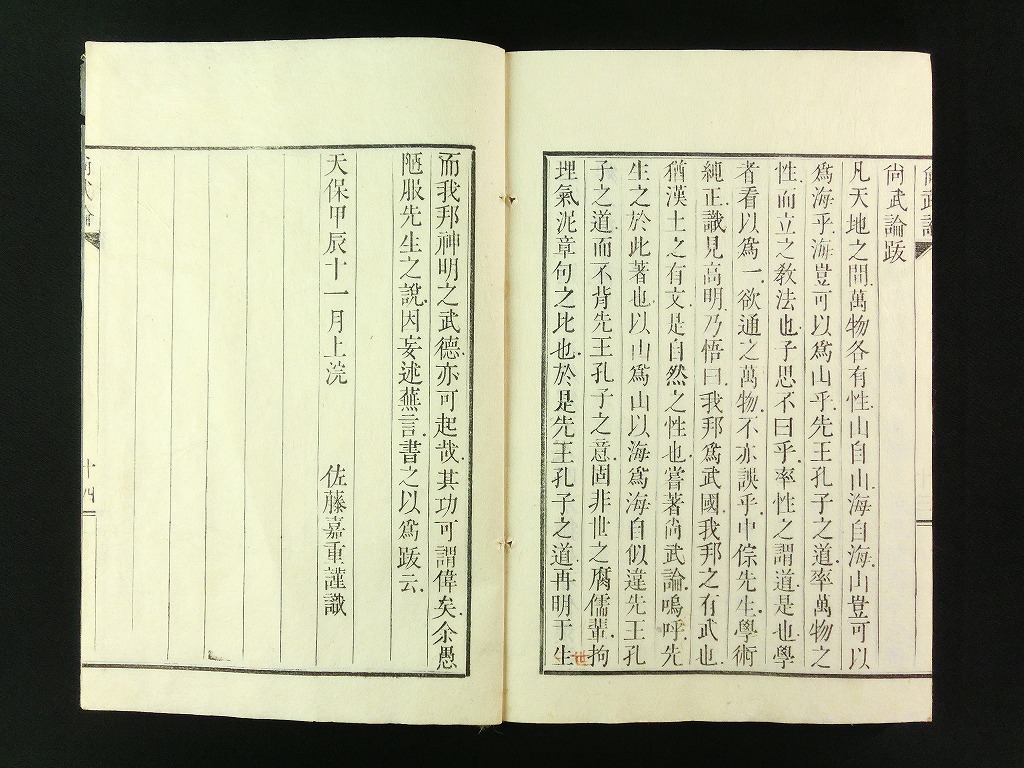 尙武論跋
凡天地之間萬物各有性山自山海自海山豈可以
爲海乎海豈可以爲山乎先王孔子之道率萬物之
性而立之敎法也子思不曰乎率性之謂道是也學
者看以爲一欲通之萬物不亦誤乎中倧先生學術
純正識見高明乃悟曰我邦爲武國我邦之有武也
猶漢土之有文是自然之性也嘗著尙武論嗚呼先
生之於此著也以山爲山以海爲海自似違先王孔
子之道而不背先王孔子之意固非世之腐儒輩拘
理氣泥章句之比也於是先王孔子之道再明于生
世
而我邦神明之武德亦可起哉其功可謂偉矣余愚
陋服先生之說因妄述蕪言書之以爲跋云
天保甲辰十一月上浣　佐藤嘉重謹識
十四